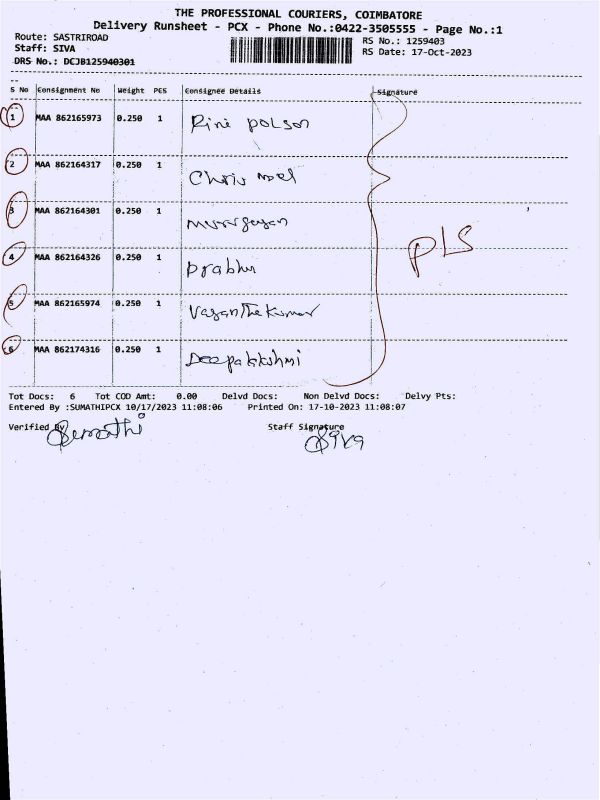 THE PROFESSIONAL COURIERS, COIMBATORE
Delivery Runsheet - PCX - Phone No.:0422-3505555 - Page No.:1
Route: SASTRIROAD
RS No.: 1259403
Staff: SIVA
RS Date: 17-Oct-2023
DRS No.: DCJB125940301
S No Consignment No Weight PCS Consignee Details Signature
1 MAA 862165973 0.250 1 Rini polson
2 MAA 862164317 0.250 1 Chris noel
3 MAA 862164301 0.250 1 murugeyan
4 MAA 862164326 0.250 1 prabhu
5 MAA 862165974 0.250 1 Vasanthakumar
6 MAA 862174316 0.250 1 Deepalakshmi
PLS
Tot Docs: 6 Tot COD Amt: 0.00 Delvd Docs: Non Delvd Docs: Delvy Pts:
Entered By :SUMATHIPCX 10/17/2023 11:08:06 Printed On: 17-10-2023 11:08:07
Verified By Staff Signature
Sumathi Siva